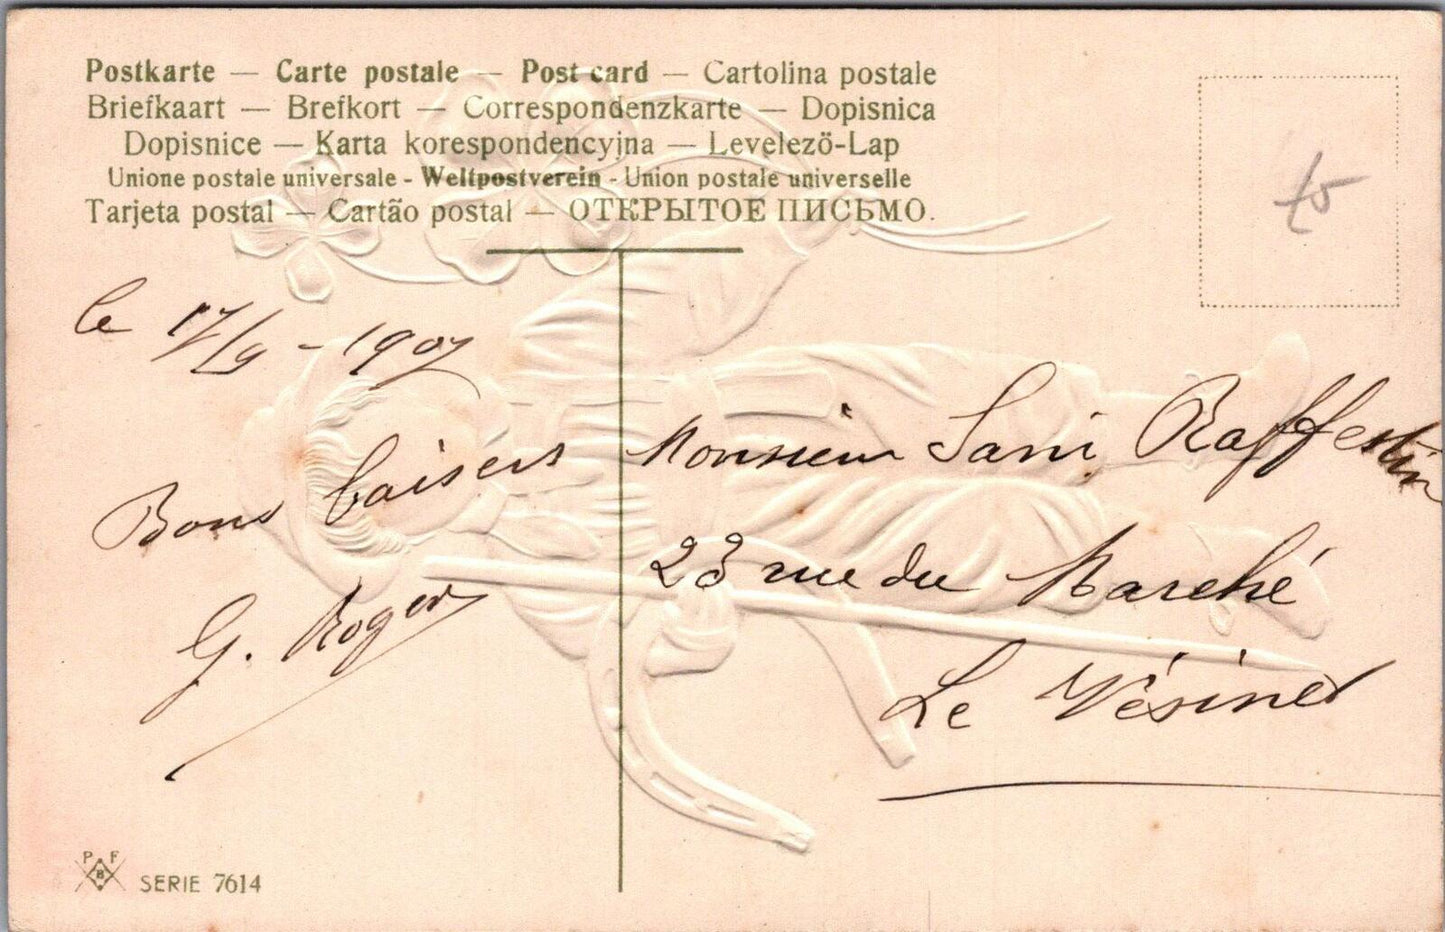 Postkarte — Carte postale — Post card — Cartolina postale
Briefkaart — Brefkort — Correspondenzkarte — Dopisnica
Dopisnice — Karta korespondencyjna — Levelezö-Lap
Unione postale universale - Weltpostverein - Union postale universelle
Tarjeta postal — Cartão postal — ОТКРЫТОЕ ПИСЬМО.
le 17/9 - 1907
Bons baisers
G. Roger
Monsieur Sani Raffestin
23 rue du Marché
Le Vésinet
P F
B
SERIE 7614